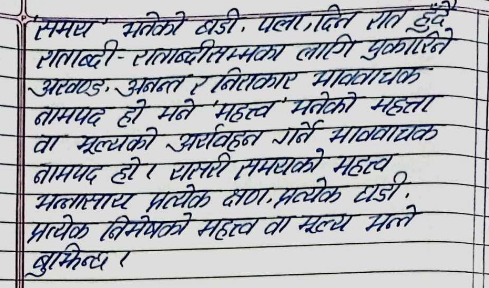 'समय' भनेको घडी, पला, दिन रात हुँदै
शताब्दी-शताब्दीसम्मका लागि पुकारिने
अखण्ड, अनन्त र निराकार भाववाचक
नामपद हो भने 'महत्त्व' भनेको महत्ता
वा मूल्यको अर्थवहन गर्ने भाववाचक
नामपद हो। यसरी समयको महत्व
भन्नासाथ प्रत्येक क्षण, प्रत्येक घडी,
प्रत्येक निमेषको महत्व वा मूल्य भन्ने
बुझिन्छ।